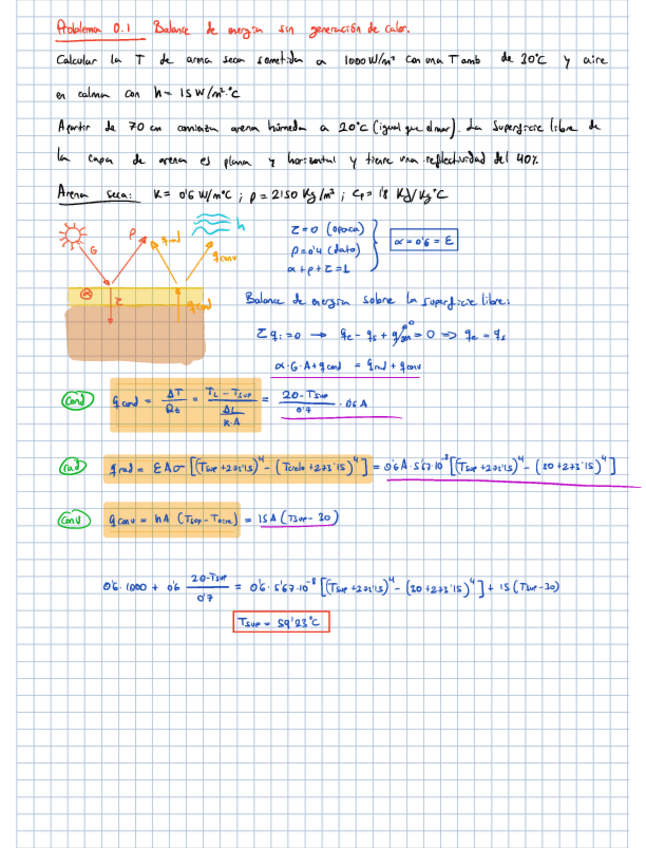 Problema 0.1 Balance de energía sin generación de calor.
Calcular la T de arena seca sometida a 1000 W/m² con una T amb de 30°C y aire
en calma con h = 15 W/m²·°C
A partir de 70 cm comienza arena húmeda a 20°C (igual que el mar). La superficie libre de
la capa de arena es plana y horizontal y tiene una reflectividad del 40%.
Arena seca: K = 0'6 W/m°C ; ρ = 2150 Kg/m³ ; Cp = 1'8 KJ/Kg°C
G ρ q rad q conv h
α τ q cond
τ = 0 (opaca)
ρ = 0'4 (dato)
α + ρ + τ = 1
α = 0'6 = ε
Balance de energía sobre la superficie libre:
Σ qi = 0 → qe - qs + q gen⁰ = 0 => qe = qs
α·G·A + q cond = q rad + q conv
Cond q cond = ΔT / Rt = (TL - Tsup) / (ΔL / K·A) = (20 - Tsup) / 0'7 · 0'6 A
rad q rad = εAσ [(Tsup + 273'15)⁴ - (Tcielo + 273'15)⁴] = 0'6 A · 5'67·10⁻⁸ [(Tsup + 273'15)⁴ - (30 + 273'15)⁴]
Conv q conv = hA (Tsup - Taire) = 15 A (Tsup - 30)
0'6 · 1000 + 0'6 (20 - Tsup) / 0'7 = 0'6 · 5'67·10⁻⁸ [(Tsup + 273'15)⁴ - (30 + 273'15)⁴] + 15 (Tsup - 30)
Tsup = 59'23°C